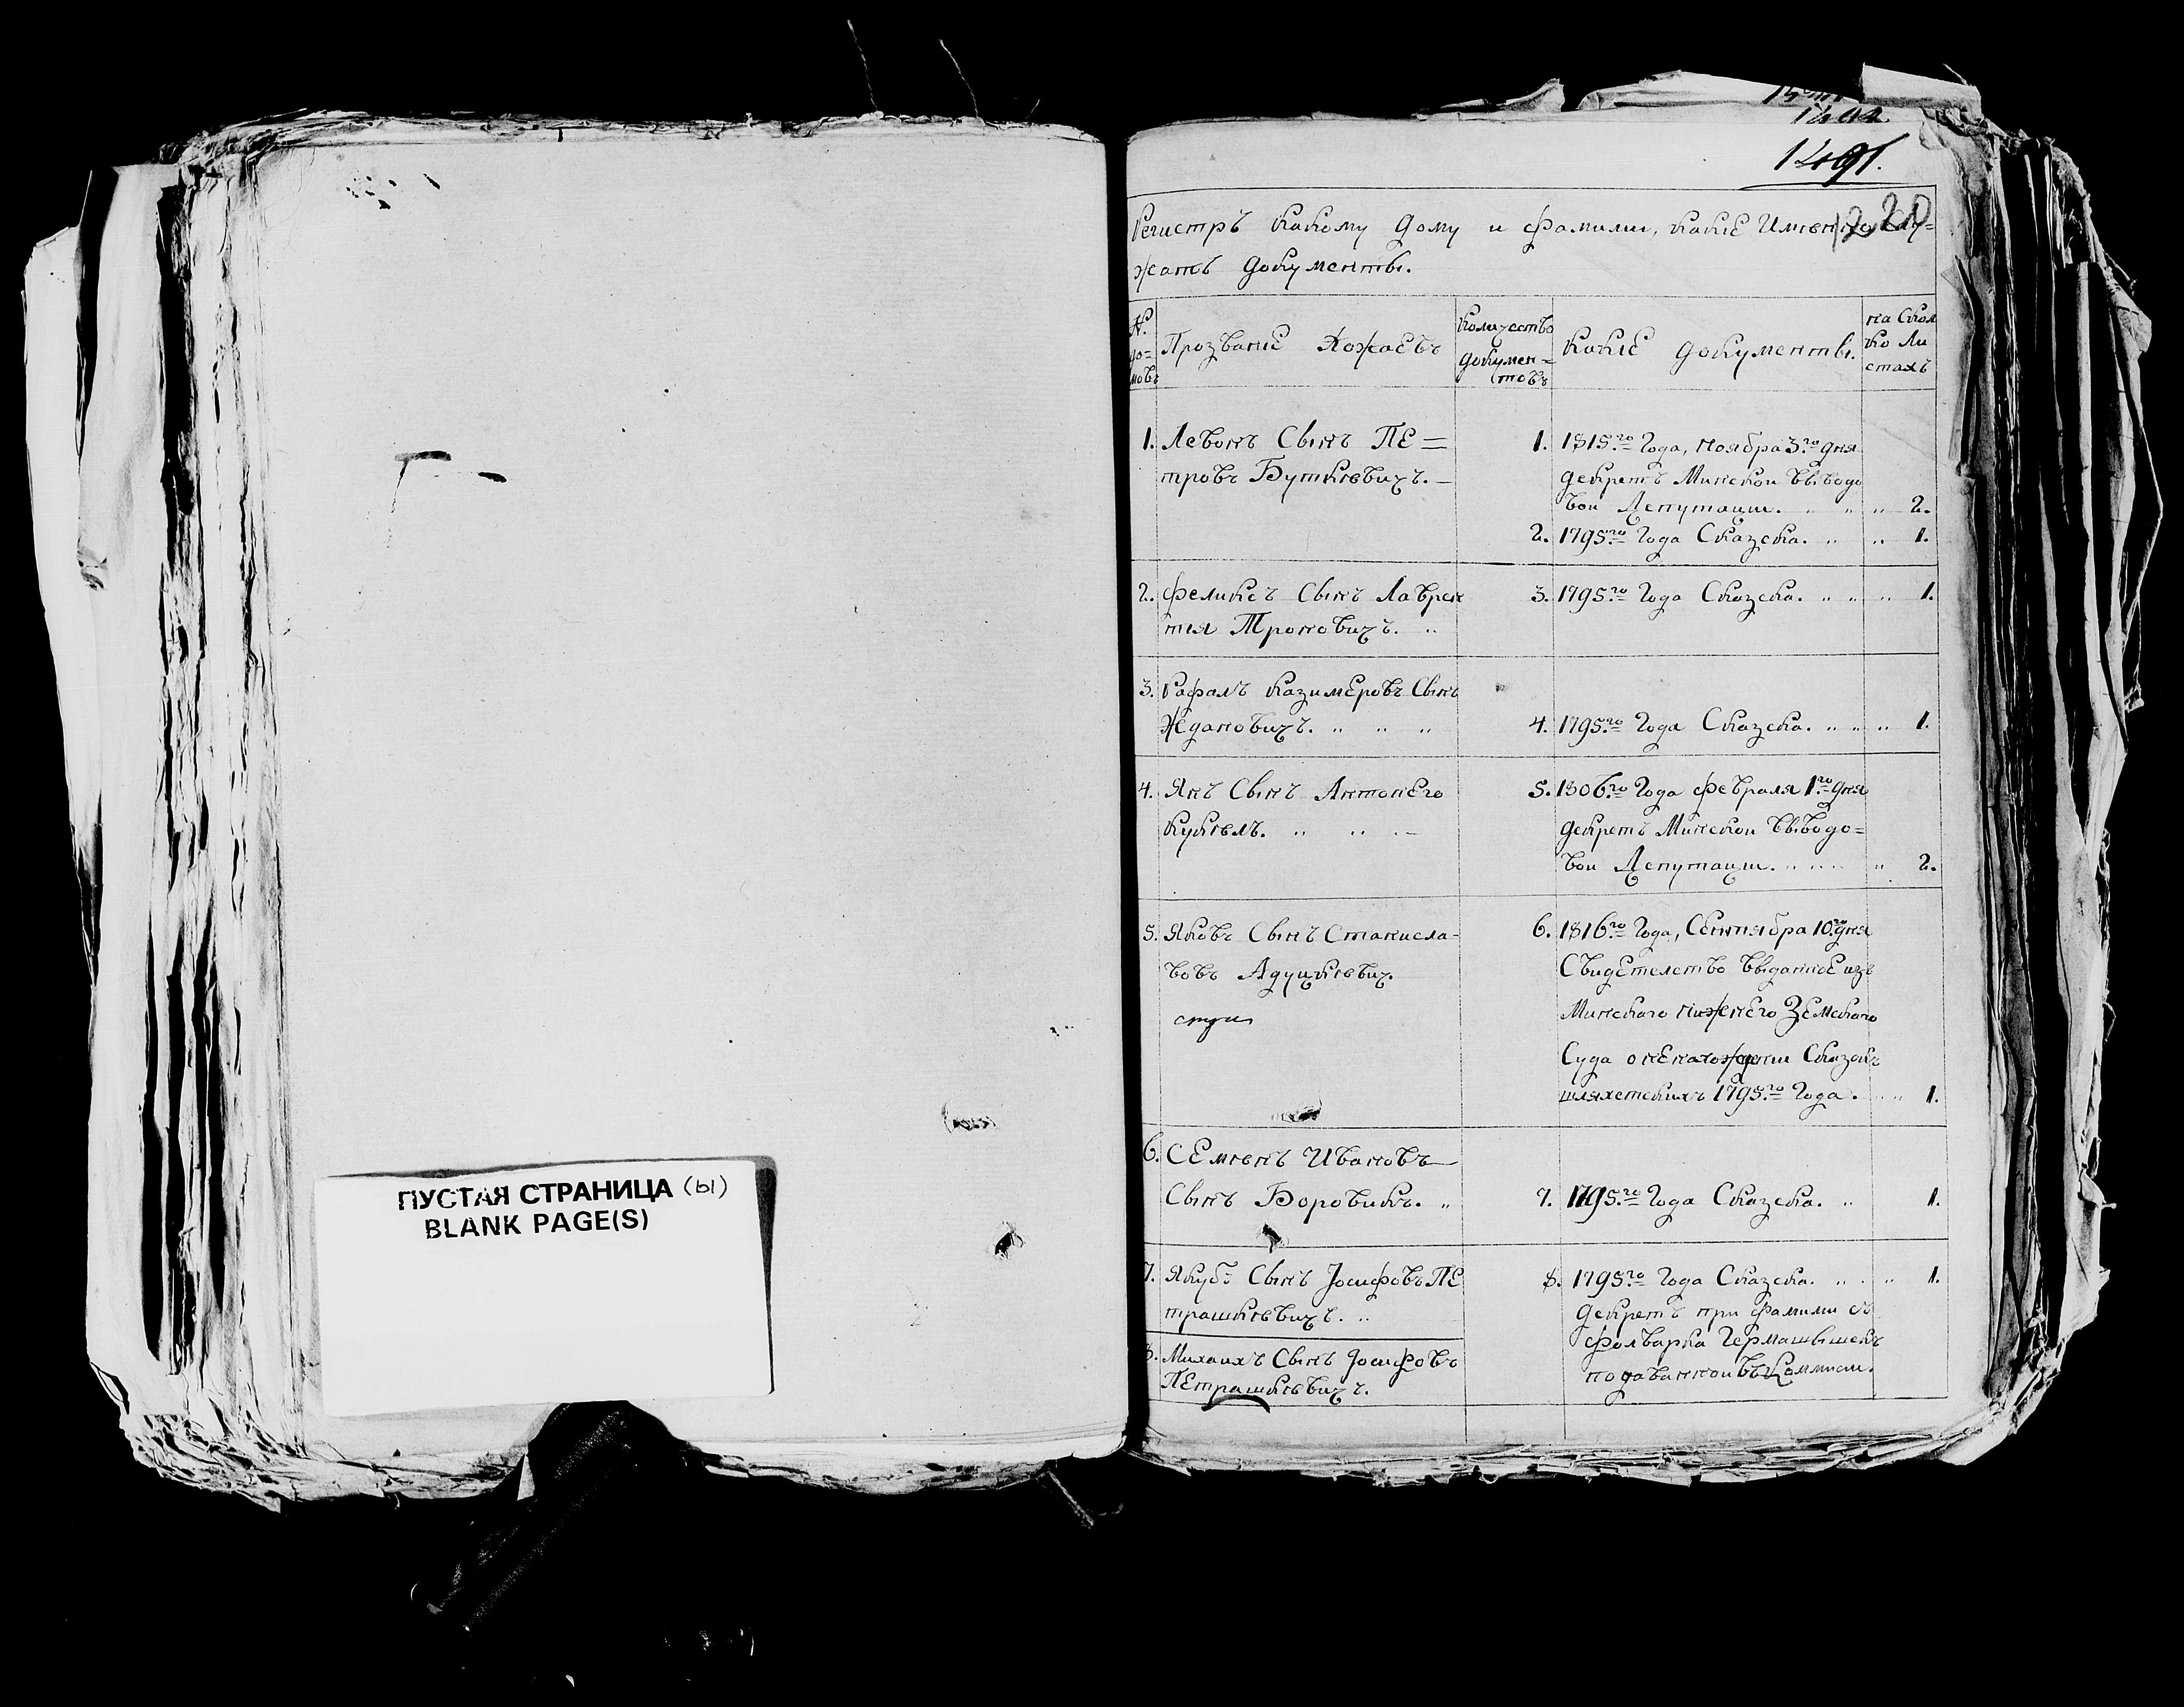 ПУСТАЯ СТРАНИЦА (ы)
BLANK PAGE(S)
1491.
1220
Регистръ какому дому и фамили, какие Именно слу=
жатъ документы.
№ до=мовъ
Прозвание Хозаевъ
Количество Докумен=товъ
какие документы.
на сколко листахъ
1. Левонъ Сынъ Пе=
тровъ Буткѣвичъ.
1. 1815го Года, Ноября 3го дня
декретъ Минской выводо
вои Депутации. " " " 2.
2. 1795го Года Сказска. " " 1.
2. Феликсъ Сынъ Лаврен
тия Троновичъ. "
3. 1795го Года Сказска. " " " 1.
3. Рафалъ Казимеровъ Сынъ
Ждановичъ. " " "
4. 1795го Года Сказска. " " " 1.
4. Янъ Сынъ Антонего
Кукѣль. " " "
5. 1806го Года февраля 1го дня
декретъ Минскои выводо=
вои Депутации. " " " 2.
5. Яковъ Сынъ Станисла-
вовъ Адуцкѣвич.
6. 1816го Года, Сентября 10го дня
Свидетелство выданное изъ
Минскаго нижнего Земскаго
Суда о ненахождении Сказокъ
шляхетскихъ 1795го Года. " " 1.
6. Семѣнъ Ивановъ
Сынъ Боровикъ. "
7. 1795го Года Сказска. " 1.
7. Якубъ Сынъ Јосифовъ Пе
трашкѣвичъ. "
8. 1795го Года Сказска. " " 1.
декретъ при фамили съ
фолварка Гермашышекъ
подаванной въ Коммисии.
8. Михаилъ Сынъ Јосифовъ
Петрашкѣвичъ.